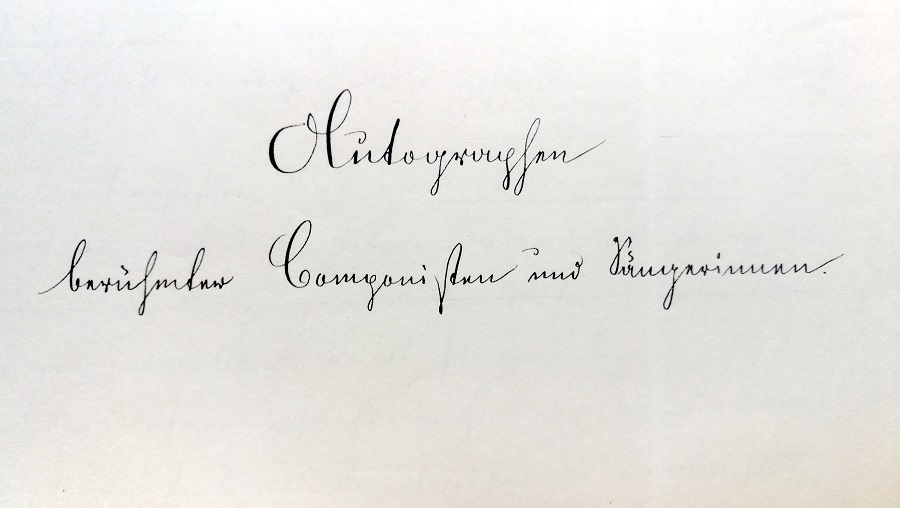 Autographen
berühmter Componisten und Sängerinnen.